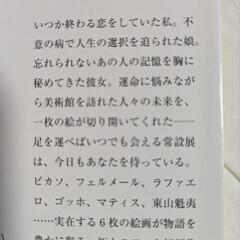 いつか終わる恋をしていた私。不
意の病で人生の選択を迫られた娘。
忘れられないあの人の記憶を胸に
秘めてきた彼女。運命に悩みなが
ら美術館を訪れた人々の未来を、
一枚の絵が切り開いてくれた――
足を運べばいつでも会える常設展
は、今日もあなたを待っている。
ピカソ、フェルメール、ラファエ
ロ、ゴッホ、マティス、東山魁夷
……実在する６枚の絵画が物語を